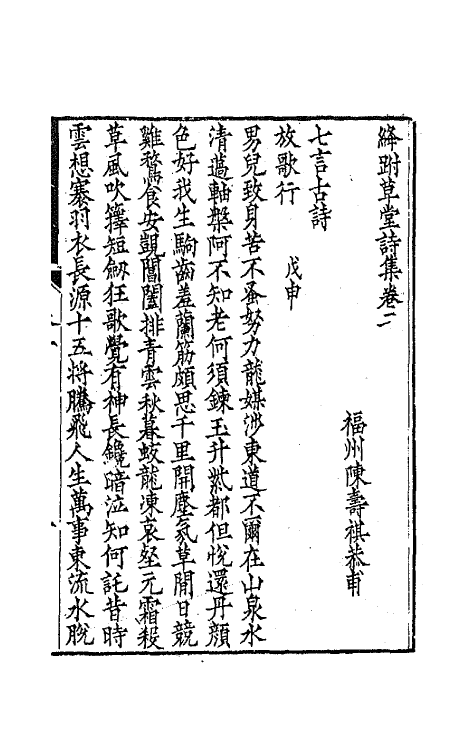 絳跗草堂詩集卷二
福州陳壽祺恭甫
七言古詩
放歌行　戊申
男兒致身苦不蚤努力龍媒涉東道不爾在山泉水
清薖軸槃阿不知老何須鍊玉升紫都但悅還丹顔
色好我生駒齒羞蘭筋頗思千里開塵氛草閒日競
雞鶩食安覩閶闔排青雲秋暮蛟龍凍哀壑元霜殺
草風吹籜短劒狂歌覺有神長鑱暗泣知何託昔時
雲想褰羽衣長源十五將騰飛人生萬事東流水脫